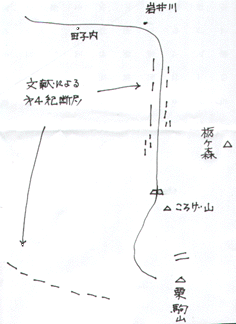 岩井川
田子内
文献による
第4紀断層
栃ヶ森
ころげ山
栗駒山